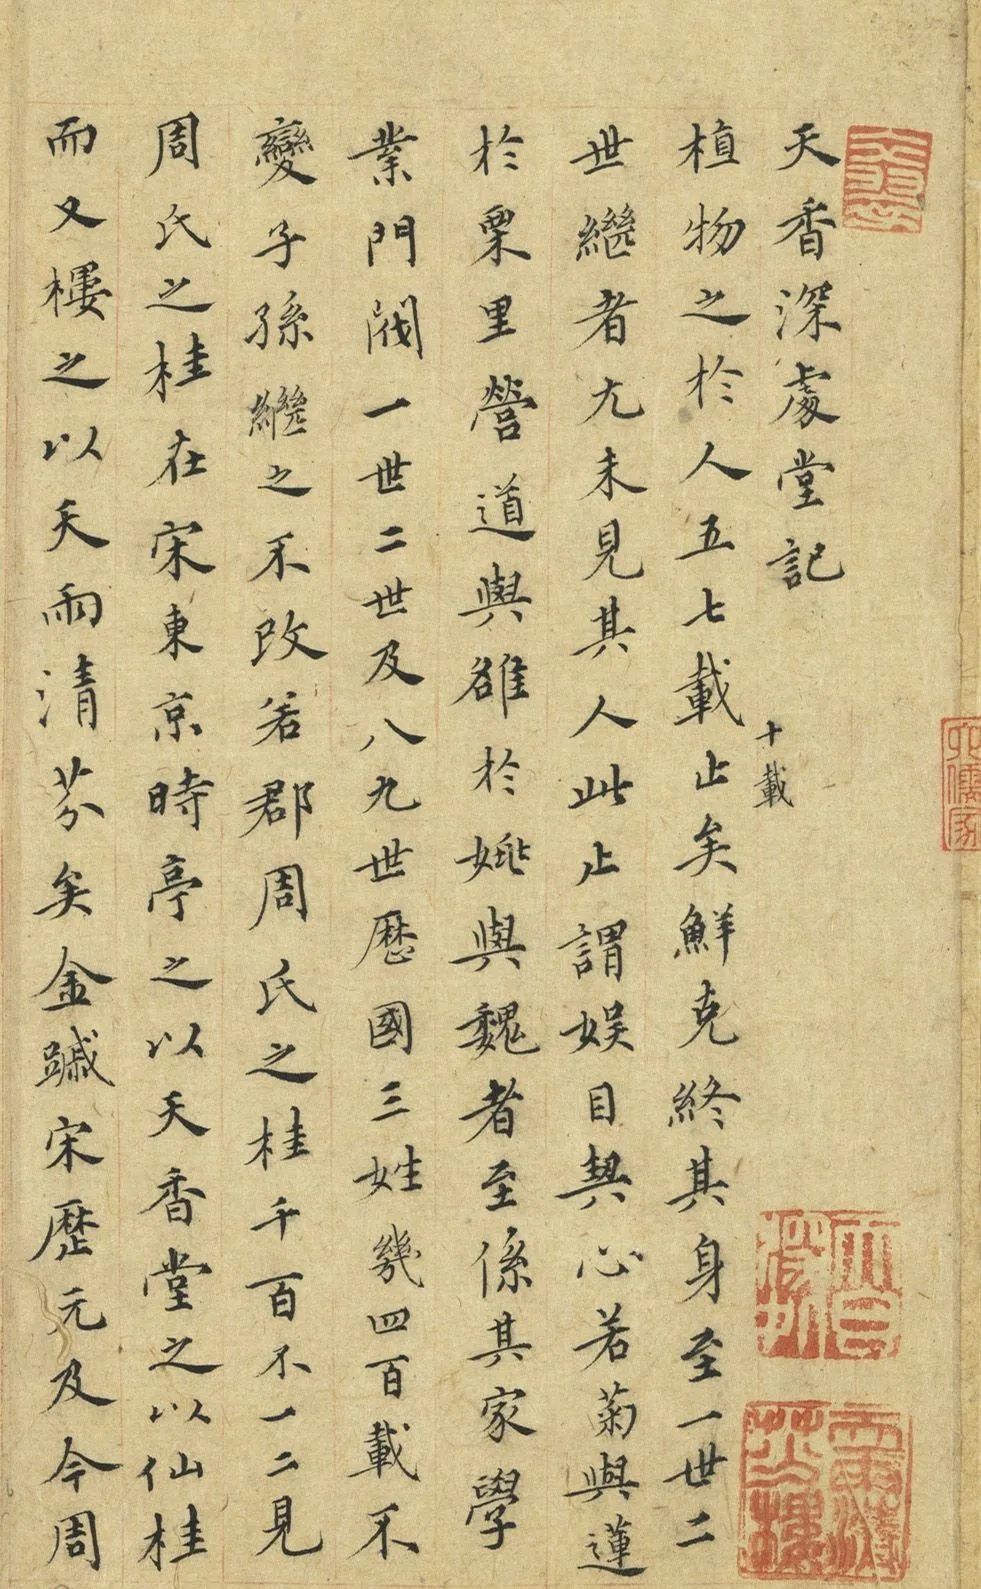 天香深處堂記
植物之於人五七載止矣鮮克終其身至一世二
十載
世繼者尢未見其人此止謂娛目契心若菊與蓮
於栗里營道與雒於姚與魏者至係其家學
業門閥一世二世及八九世歷國三姓幾四百載不
變子孫繼之不改若郡周氏之桂千百不一二見
周氏之桂在宋東京時亭之以天香堂之以仙桂
而又樓之以天雨清芬矣金蹴宋歷元及今周